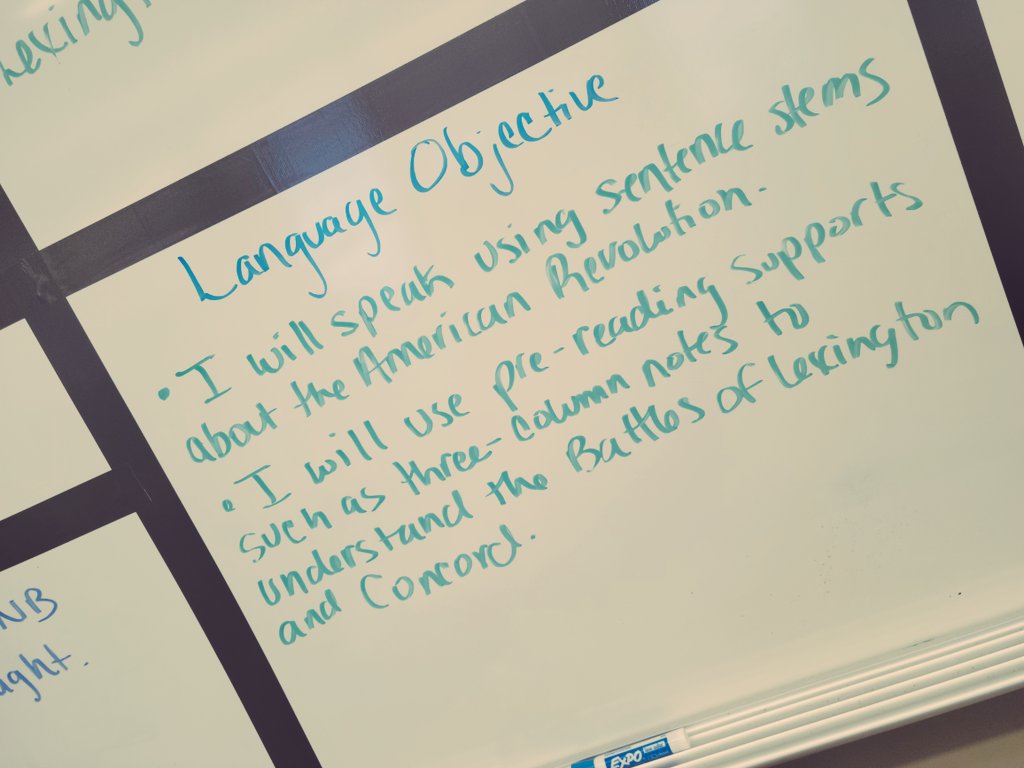 Lexing
Language Objective
• I will speak using sentence stems
about the American Revolution.
• I will use pre-reading supports
such as three-column notes to
understand the Battles of Lexington
and Concord.
NB
ght.
EXPO